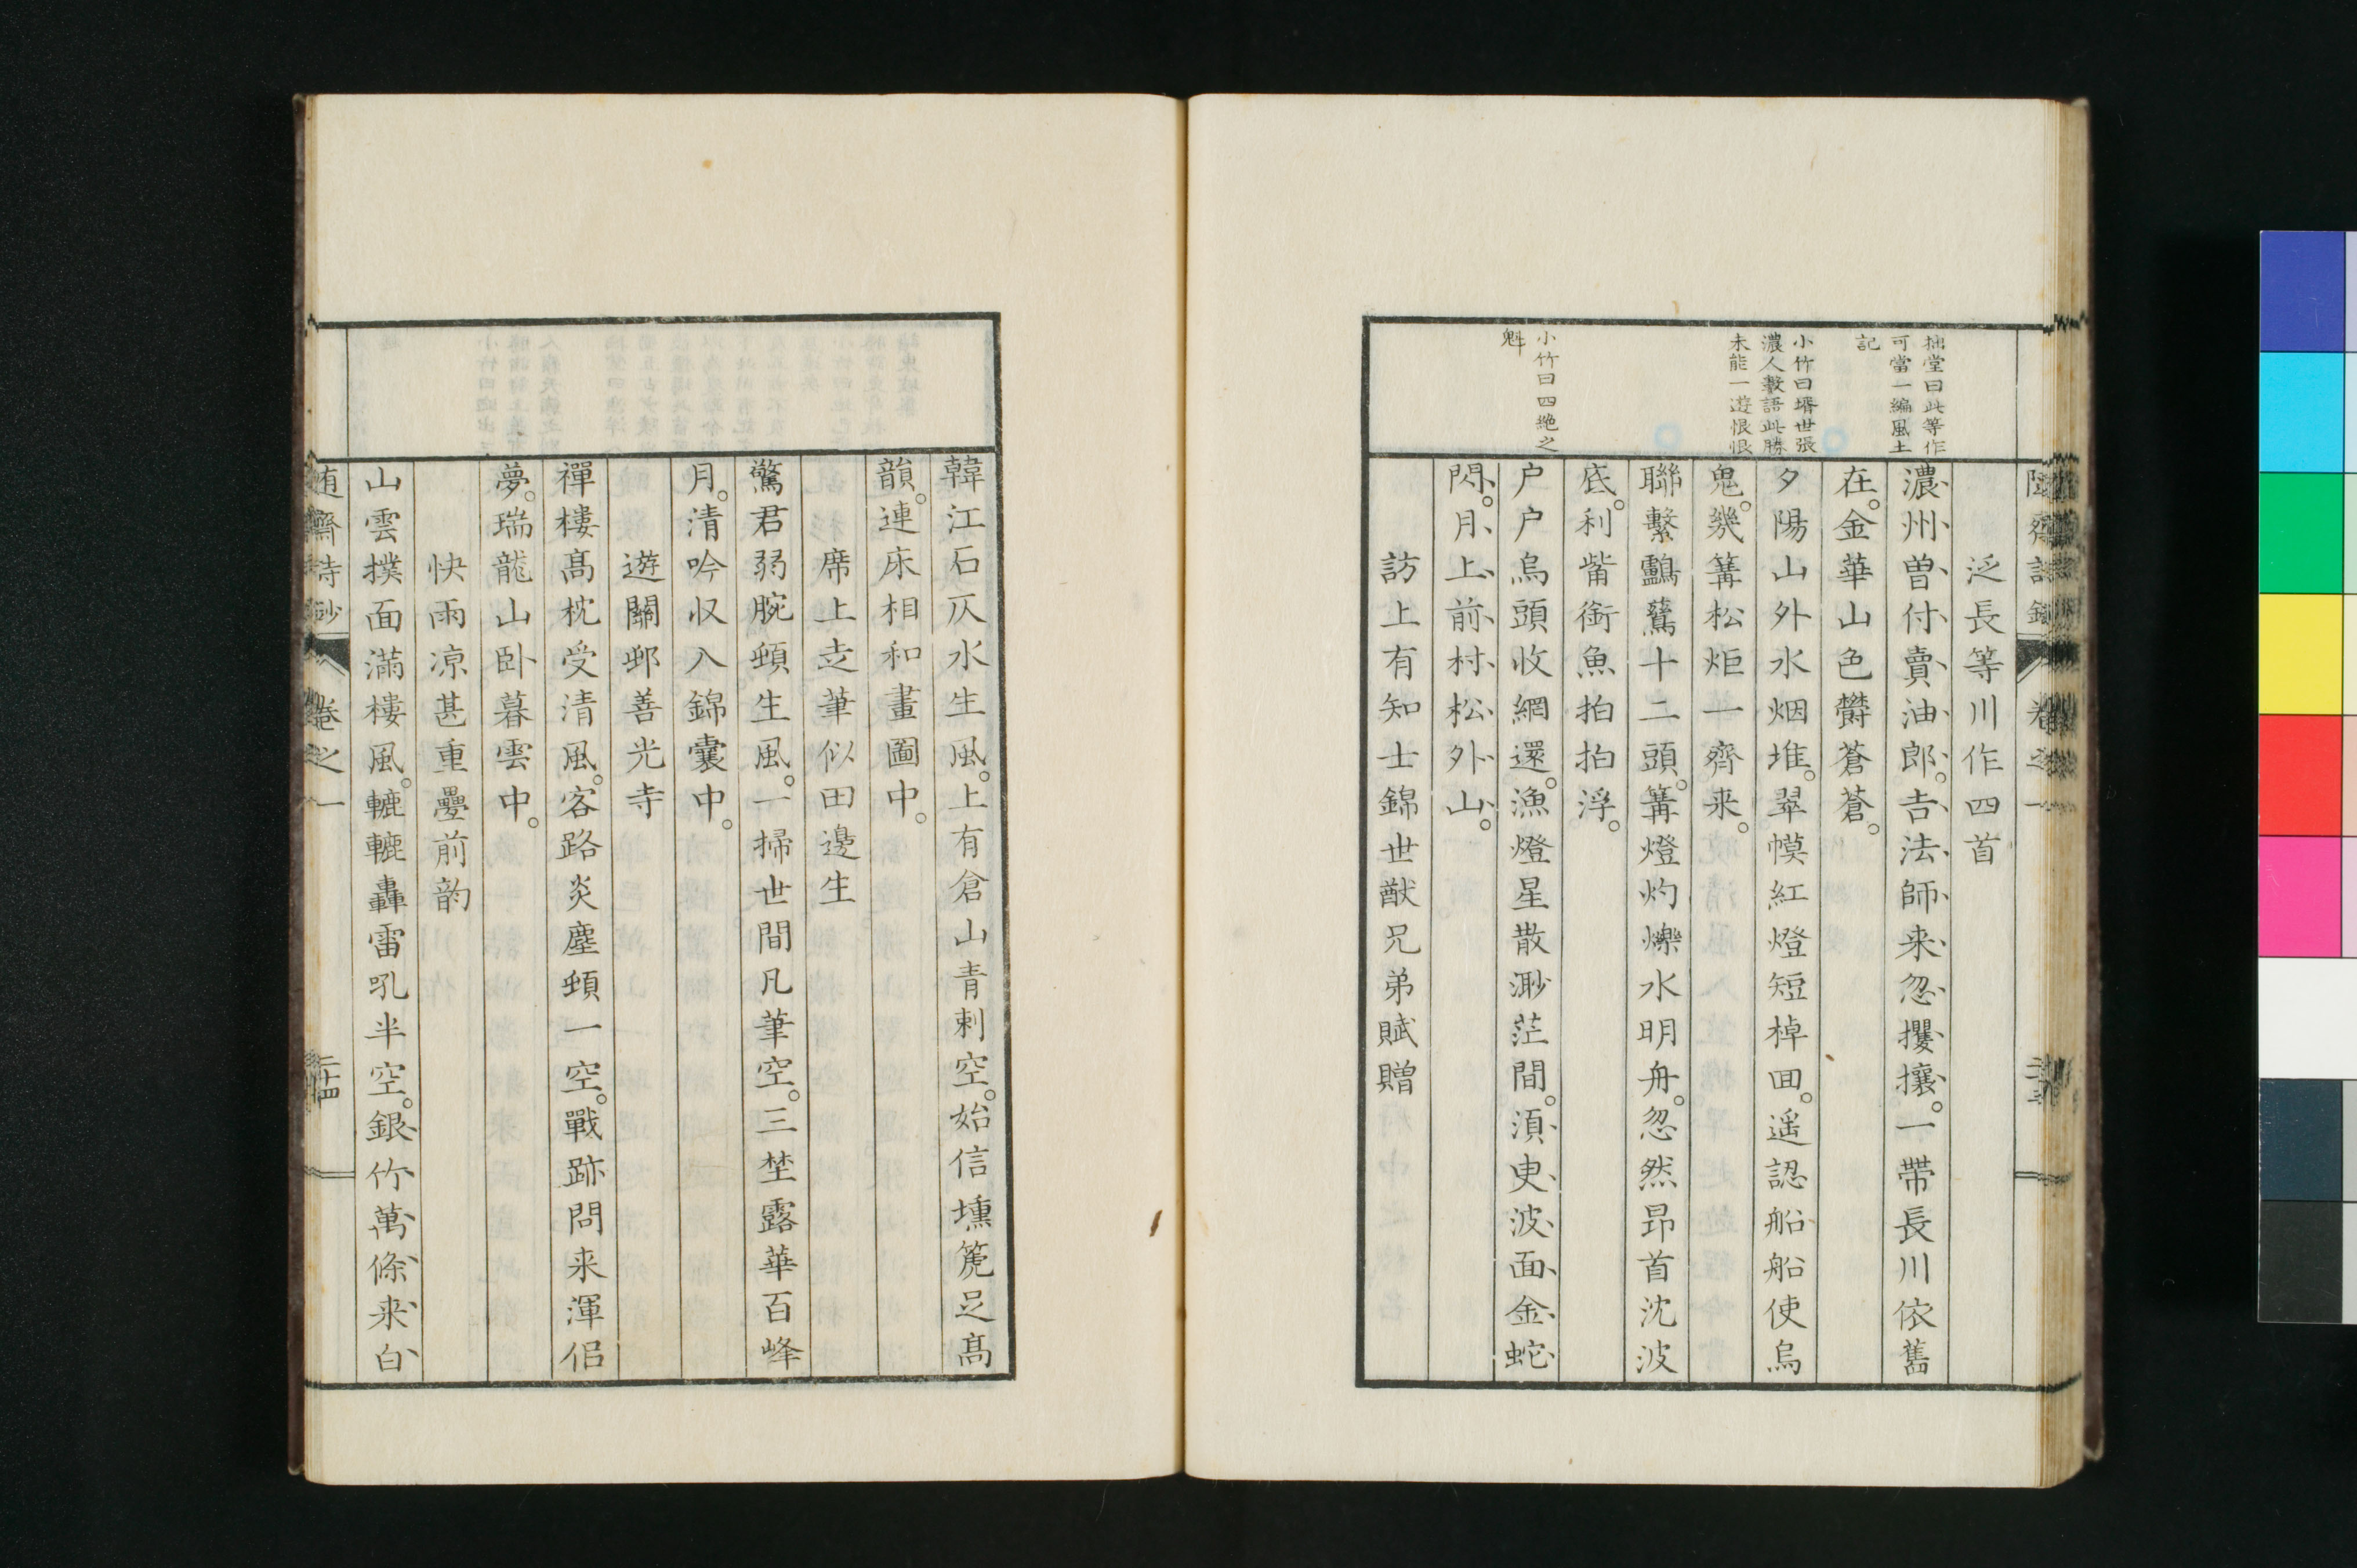 拙堂曰此等作
可當一編風土
記
小竹曰壻世張
濃人數語此勝
未能一遊恨恨
小竹曰四絶之
魁
泛長等川作四首
濃州曽付賣油郎。吉法師来忽攫攘。一帶長川依舊
在。金華山色欝蒼蒼。
夕陽山外水烟堆。翠幙紅燈短棹回。遥認船船使烏
鬼。幾篝松炬一齊来。
聯繫鸕鷀十二頭。篝燈灼爍水明舟。忽然昂首沈波
底。利觜銜魚拍拍浮。
户户烏頭收網還。漁燈星散渺茫間。湏臾波面金蛇
閃。月上前村松外山。
訪上有知士錦世猷兄弟賦贈
韓江石仄水生風。上有倉山青刺空。始信壎篪足髙
韻。連床相和畫圖中。
席上走筆似田邊生
驚君弱腕頓生風。一掃世間凡筆空。三埜露華百峰
月。清吟収入錦囊中。
遊關邨善光寺
禪樓髙枕受清風。客路炎塵頓一空。戰跡問来渾侣
夢。瑞龍山卧暮雲中。
快雨凉甚重疊前韵
山雲撲面滿樓風。轆轆轟雷吼半空。銀竹萬條来白
卷之一
二十四